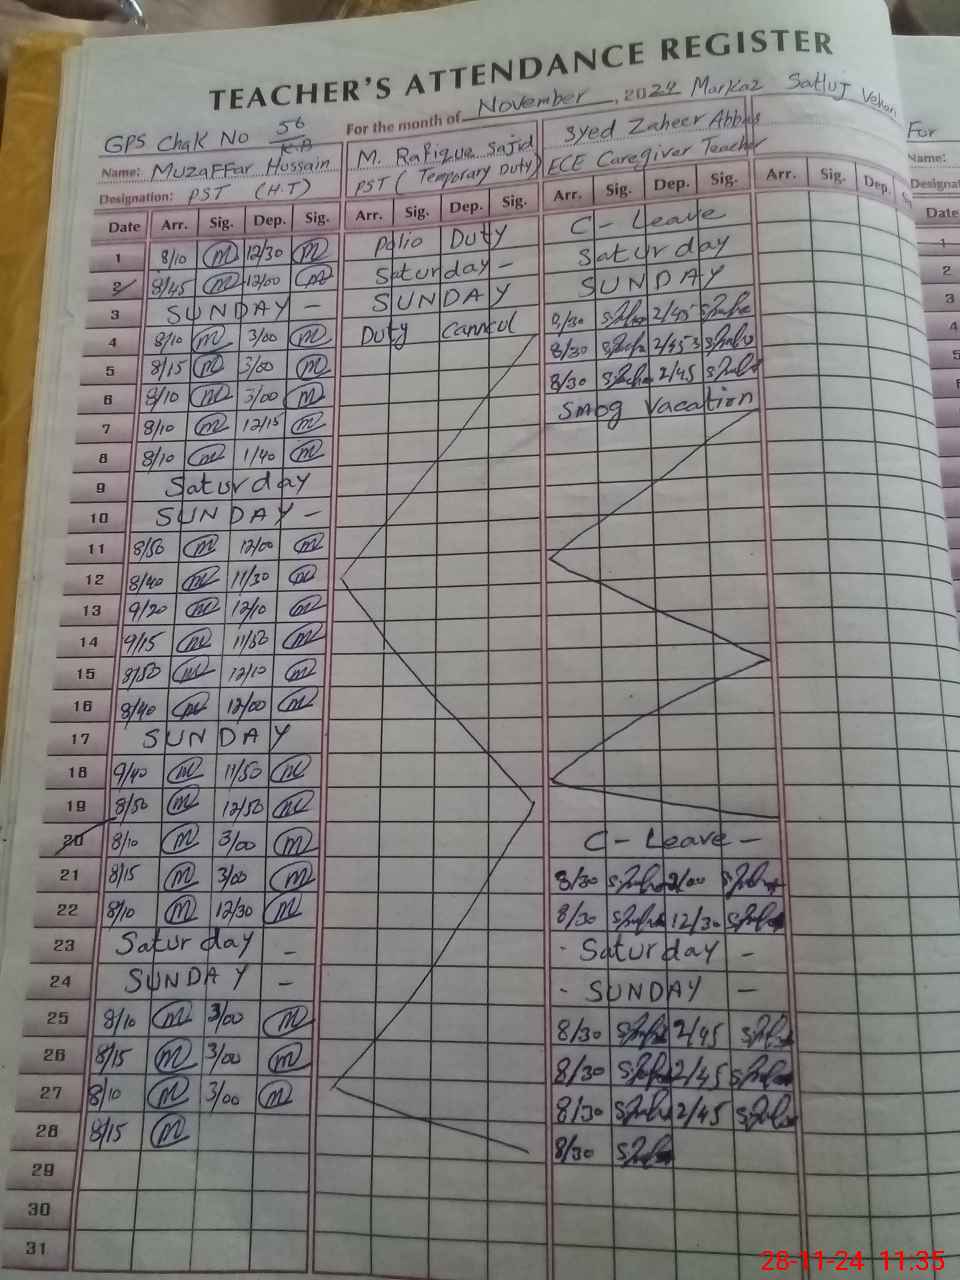 TEACHER'S ATTENDANCE REGISTER
GPS Chak No 56/KB For the month of November, 2024 Markaz Satluj Vehari For
Name: Muzaffar Hussain M. Rafique Sajid Syed Zaheer Abbas Name:
Designation: PST (H.T) PST (Temporary Duty) ECE Caregiver Teacher
Date Arr. Sig. Dep. Sig. Arr. Sig. Dep. Sig. Arr. Sig. Dep. Sig. Arr. Sig. Dep. Date
1 8/10 m 12/30 m Polio Duty C - Leave 1
2 8/45 m 12/00 m Saturday - Saturday 2
3 SUNDAY - SUNDAY SUNDAY 3
4 8/10 m 3/00 m Duty Canncul 8/30 2/45 4
5 8/15 m 3/00 m 8/30 2/45 5
6 8/10 m 3/00 m 8/30 2/45 6
7 8/10 m 12/15 m Smog Vacation
8 8/10 m 1/40 m
9 Saturday
10 SUNDAY -
11 8/50 m 12/00 m
12 8/40 m 11/30 m
13 9/20 m 12/10 m
14 9/15 m 11/50 m
15 8/50 m 12/10 m
16 8/40 m 12/00 m
17 SUNDAY
18 9/40 m 11/50 m
19 8/50 m 12/50 m
20 8/10 m 3/00 m C - Leave -
21 8/15 m 3/00 m 8/30
22 8/10 m 12/30 m 8/30 12/30
23 Saturday - - Saturday -
24 SUNDAY - - SUNDAY -
25 8/10 m 3/00 m 8/30 2/45
26 8/15 m 3/00 m 8/30 2/45
27 8/10 m 3/00 m 8/30 2/45
28 8/15 m 8/30
29
30
31
28-11-24 11:35